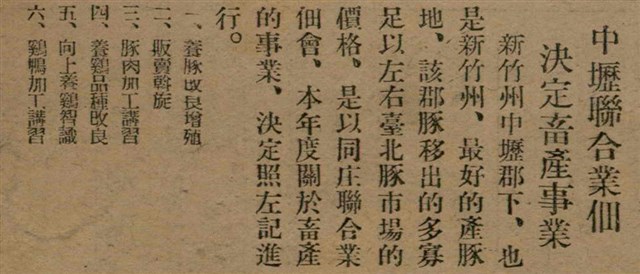 中壢聯合業佃
決定畜產事業
新竹州中壢郡下、也
是新竹州、最好的產豚
地、該郡豚移出的多寡
足以左右臺北豚市場的
價格。是以同庄聯合業
佃會、本年度關於畜產
的事業、決定照左記進
行。
一、養豚改良增殖
二、販賣斡旋
三、豚肉加工講習
四、養鷄品種改良
五、向上養鷄智識
六、鷄鴨加工講習